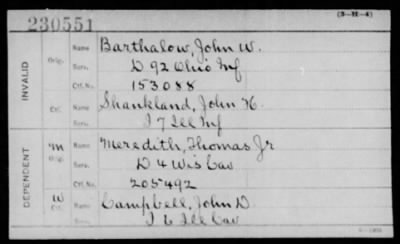 230551
(3-H-4)
INVALID
Orig.
Name Barthalow, John W.
Serv. D 92 Ohio Inf
Ctf. No. 153088
Ctf.
Name Shankland, John H.
Serv. I 7 Ill Inf
DEPENDENT
M
Orig.
Name Meredith, Thomas Jr
Serv. D 4 Wis Cav
Ctf. No. 205492
W
Ctf.
Name Campbell, John D.
Serv. I 6 Ill Cav